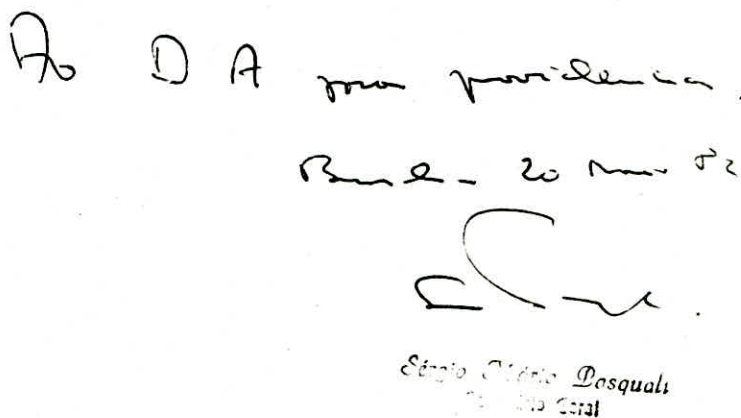 Ao D A para providencias.
20 82
Sérgio Mário Pasquali
Geral